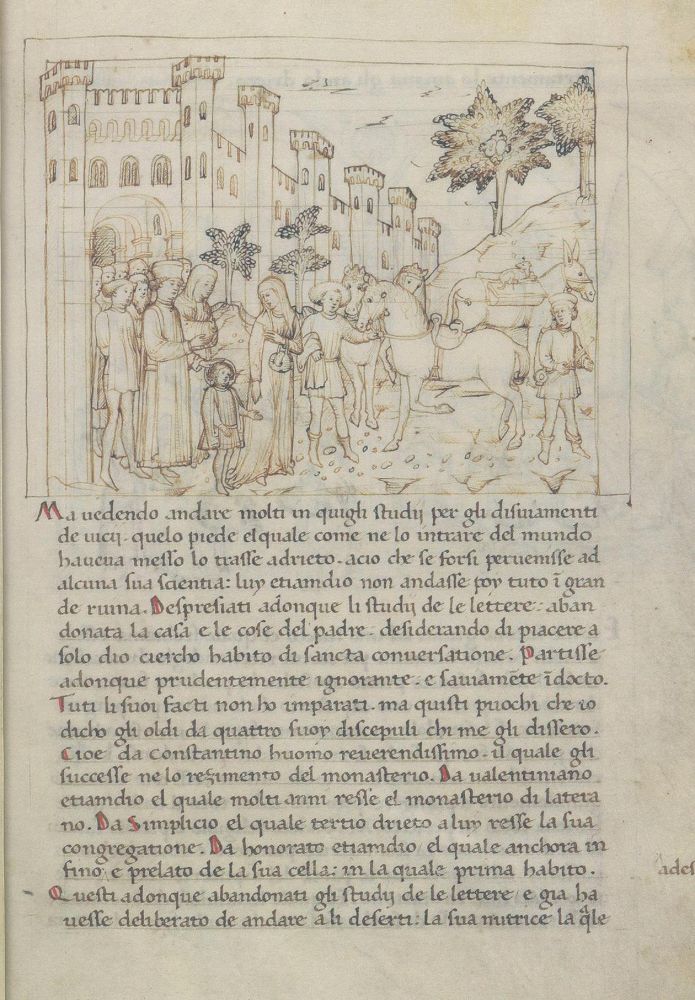 Ma uedendo andare molti in quigli studij per gli disuiamenti
de uicij · quelo piede el quale come ne lo intrare del mundo
haueua messo lo trasse adrieto · acio che se forsi peruenisse ad
alcuna sua scientia: luy etiamdio non andasse poy tuto ī gran
de ruina. Despresiati adonque li studij de le lettere: aban
donata la casa e le cose del padre · desiderando di piacere a
solo dio ciercho habito di sancta conuersatione. Partisse
adonque prudentemente ignorante · e sauiamēte īdocto.
Tuti li suoi facti non ho imparati · ma quisti puochi che io
dicho gli oldi da quattro suoy discepuli chi me gli dissero.
Cioe da Constantino huomo reuerendissimo · il quale gli
successe ne lo rezimento del monasterio. Da ualentiniano
etiamdio el quale molti anni resse el monasterio di latera
no. Da Simplicio el quale tertio drieto a luy resse la sua
congregatione. Da honorato etiamdio el quale anchora in
fino e prelato de la sua cella: in la quale prima habito.
Questi adonque abandonati gli studij de le lettere e gia ha
uesse deliberato de andare a li deserti: la sua nutrice la q̄le
ades